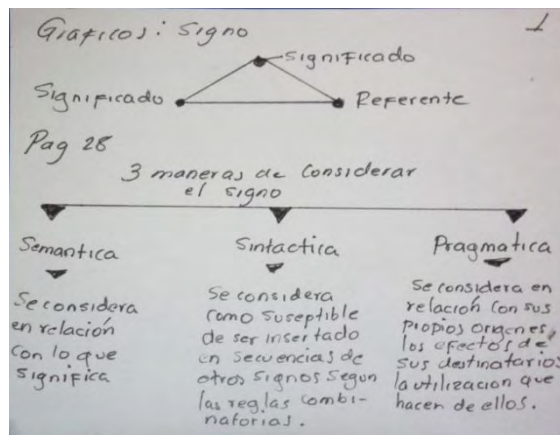 Gráficos: Signo
1
Significado
Significado
Referente
Pag 28
3 maneras de Considerar
el signo
Semantica
Se considera
en relación
con lo que
significa
Sintactica
Se considera
como suseptible
de ser insertado
en secuencias de
otros signos segun
las reglas combi-
natorias.
Pragmatica
Se considera en
relación con sus
propios origenes,
los efectos de
sus destinatarios
la utilizacion que
hacen de ellos.